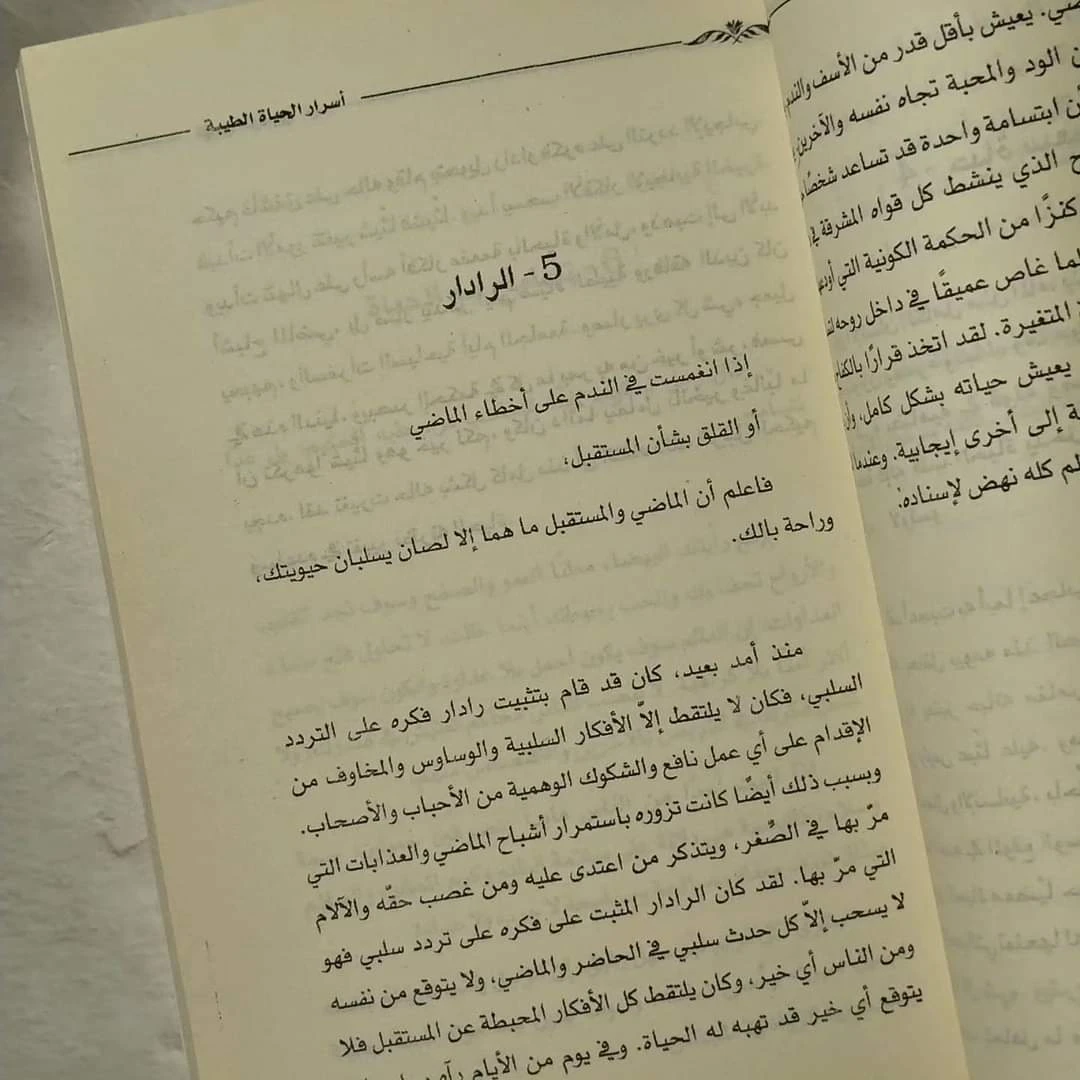 ضي. يعيش بأقل قدر من الأسف والندم
ن الود والمحبة تجاه نفسه والآخرين
ن ابتسامة واحدة قد تساعد شخصًا
ح الذي ينشط كل قواه المشرقة في
كنزًا من الحكمة الكونية التي أودع
لما غاص عميقًا في داخل روحه
المتغيرة. لقد اتخذ قرارًا بالكفاح
يعيش حياته بشكل كامل، وأن
ة إلى أخرى إيجابية. وعندما
لم كله نهض لإسناده.
أسرار الحياة الطيبة
5 - الرادار
إذا انغمست في الندم على أخطاء الماضي
أو القلق بشأن المستقبل،
فاعلم أن الماضي والمستقبل ما هما إلا لصان يسلبان حيويتك،
وراحة بالك.
منذ أمد بعيد، كان قد قام بتثبيت رادار فكره على التردد
السلبي، فكان لا يلتقط إلاّ الأفكار السلبية والوساوس والمخاوف من
الإقدام على أي عمل نافع والشكوك الوهمية من الأحباب والأصحاب.
وبسبب ذلك أيضًا كانت تزوره باستمرار أشباح الماضي والعذابات التي
مرّ بها في الصِّغر، ويتذكر من اعتدى عليه ومن غصب حقّه والآلام
التي مرّ بها. لقد كان الرادار المثبت على فكره على تردد سلبي فهو
لا يسحب إلاّ كل حدث سلبي في الحاضر والماضي، ولا يتوقع من نفسه
ومن الناس أي خير، وكان يلتقط كل الأفكار المحبطة عن المستقبل فلا
يتوقع أي خير قد تهبه له الحياة. وفي يوم من الأيام